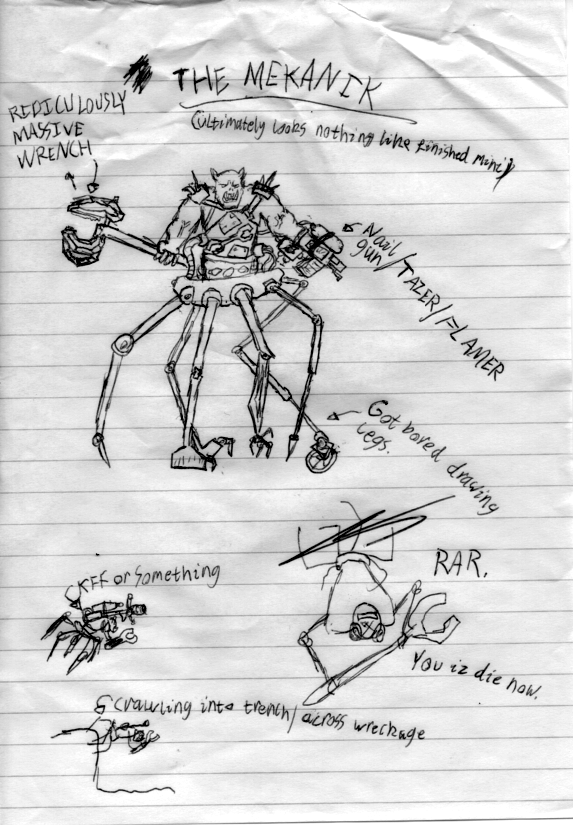 THE MEKANIK
(ultimately looks nothing like finished mini)
RIDICULOUSLY
MASSIVE
WRENCH
Nail
gun/TAZER/FLAMER
Got bored drawing
legs.
or something
RAR.
You iz die now.
crawling into trench/across wreckage